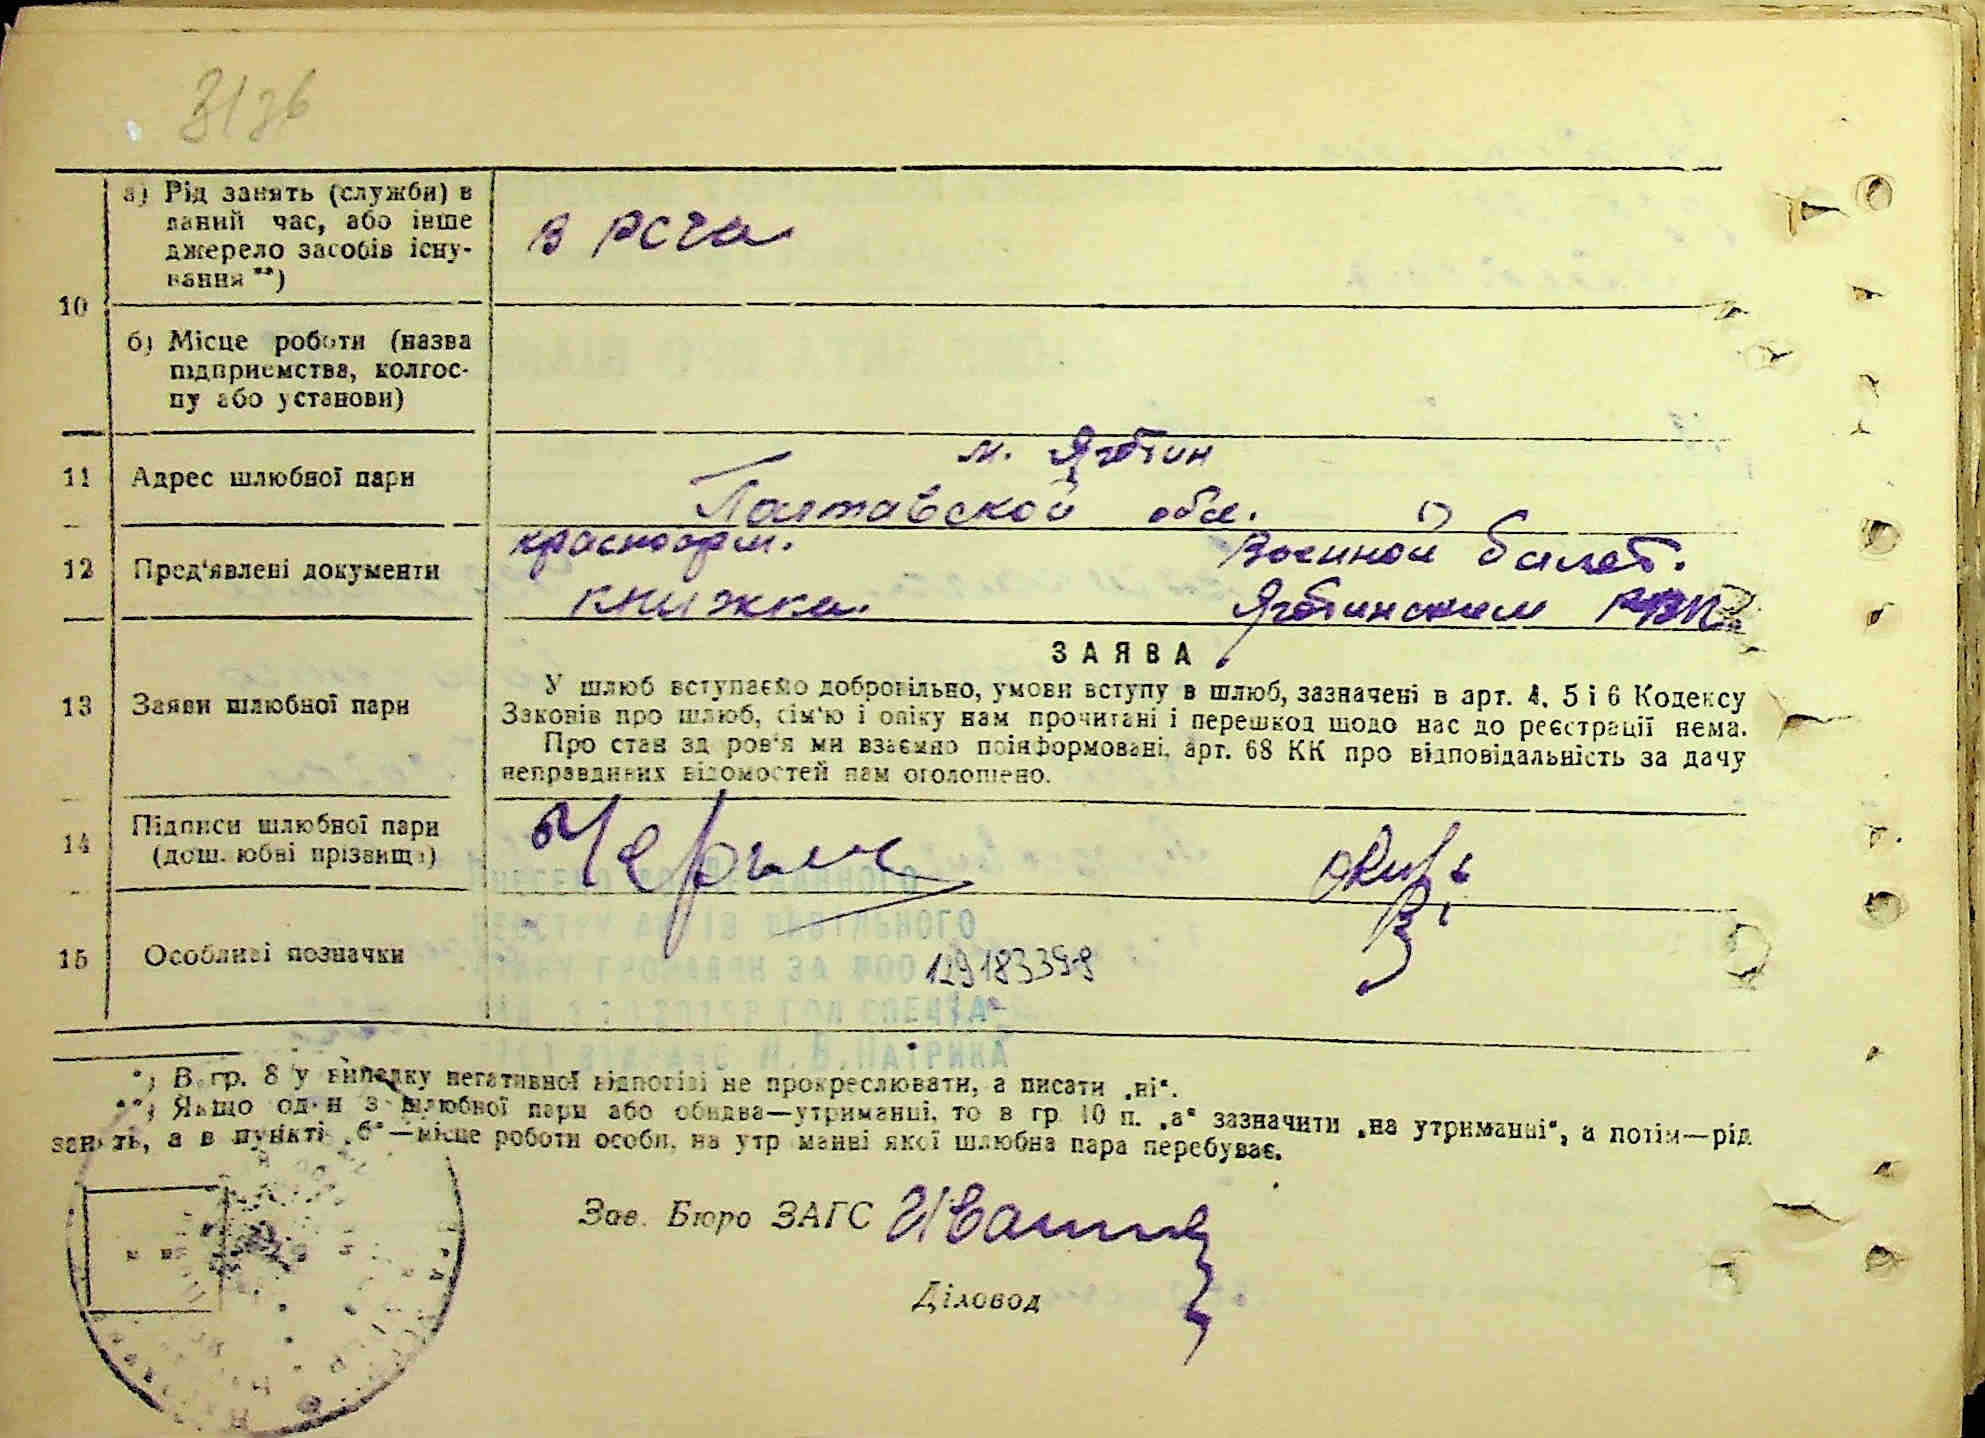 3136
10
а) Рід занять (служби) в
даний час, або інше
джерело засобів існу-
вання **)
в РСЧА
б) Місце роботи (назва
підприємства, колгос-
пу або установи)
11
Адрес шлюбної пари
м. Яготин
Полтавской обл.
12
Пред'явлені документи
красноарм.
книжка.
Военной билет.
Яготинским РВК
13
Заяви шлюбної пари
ЗАЯВА
У шлюб вступаємо добровільно, умови вступу в шлюб, зазначені в арт. 4, 5 і 6 Кодексу
Законів про шлюб, сім'ю і опіку нам прочитані і перешкод щодо нас до реєстрації нема.
Про стан здоров'я ми взаємно поінформовані, арт. 68 КК про відповідальність за дачу
неправдивих відомостей нам оголошено.
14
Підписи шлюбної пари
(дошлюбні прізвища)
15
Особливі позначки
ВНЕСЕНО ДО ДЕРЖАВНОГО
РЕЄСТРУ АКТІВ ЦИВІЛЬНОГО
СТАНУ ГРОМАДЯН ЗА №00
129183399
ГОЛ СПЕЦІА-
ЛІСТ ВІДРАЦС Н.В.ПАТРИКА
*) В гр. 8 у випадку негативної відповіді не прокреслювати, а писати „ні“.
**) Якщо один з шлюбної пари або обидва—утриманці, то в гр. 10 п. „а“ зазначити „на утриманні“, а потім—рід
занять, а в пункті „б“—місце роботи особи, на утриманні якої шлюбна пара перебуває.
Зав. Бюро ЗАГС
Діловод